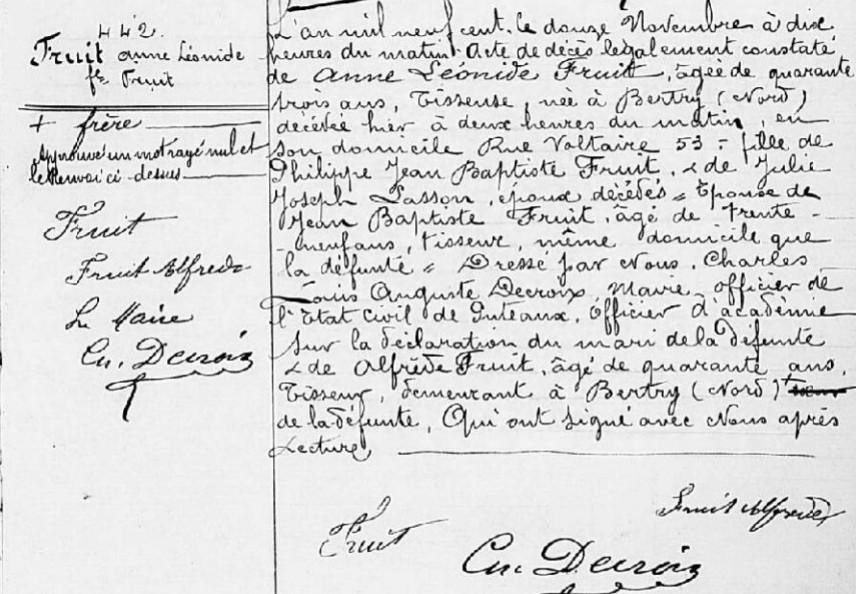 442.
Fruit Anne Léonide
fe Fruit
+ frère
Approuvé un mot rayé nul et
le Renvoi ci-dessus
Fruit
Fruit Alfrede
Le Maire
Ch. Decroix
L'an mil neuf cent, le douze Novembre à dix
heures du matin. Acte de décès légalement constaté
de Anne Léonide Fruit, âgée de quarante
trois ans, Tisseuse, née à Bertry (Nord)
décédée hier à deux heures du matin, en
son domicile Rue Voltaire 53 = fille de
Philippe Jean Baptiste Fruit, & de Julie
Joseph Lasson, époux décédés = Epouse de
Jean Baptiste Fruit, âgé de trente-
-neuf ans, tisseur, même domicile que
la défunte = Dressé par Nous, Charles
Louis Auguste Decroix, Maire, officier de
l'Etat civil de Puteaux, Officier d'académie
sur la déclaration du mari de la défunte
& de Alfrède Fruit, âgé de quarante ans,
Tisseur, demeurant à Bertry (Nord) +
de la défunte, Qui ont signé avec Nous après
Lecture
Fruit
Fruit Alfrede
Ch. Decroix